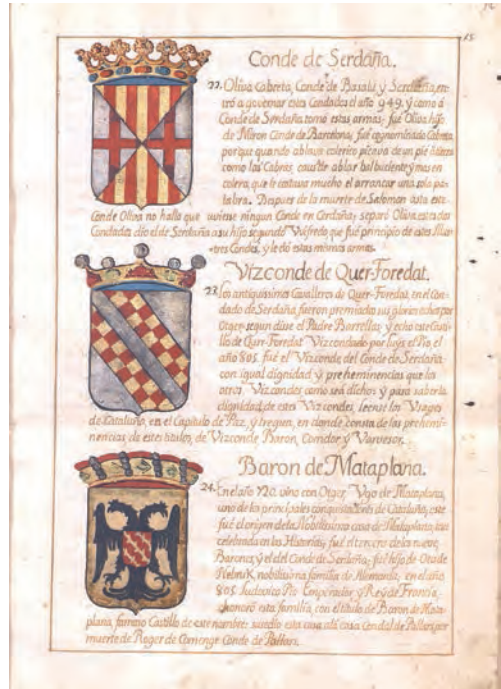 15
Conde de Serdaña.
22. Oliva Cabreta, Conde de Basalu y Serdaña, en
tró a governar estos Condados el año 949. y como á
Conde de Serdaña tomó estas armas; fue Oliva hijo
de Miron Conde de Barcelona; fue cognominado Cabreta,
porque quando ablava colerico picava de un pie
como las Cabras, causa de ablar balbuciente y mas en
colera, que le costava mucho el arrancar una sola pa-
labra. Despues de la muerte de Salomon asta este
Conde Oliva no hallo que uviese ningun Conde en Cerdaña; separó Oliva estos dos
Condados dio el de Serdaña a su hijo segundo Vifredo que fue principio de estos Illus-
tres Condes, y le dió estas mismas armas.
Vizconde de Quer-Foredat.
23. Los antiquissimos Cavalleros de Quer-Foredat, en el Con-
dado de Serdaña fueron premiados sus glorias echas por
Otger, segun dise el Padre Barrellas; y echo este Cavá-
llo de Quer-Foredat Vizcondado por Luys el Pio, el
año 805. fué el Vizconde del Conde de Serdaña
con igual dignidad y preheminencias que los
otros Vizcondes como sea dichos y para saber la
dignidad de estos Vizcondes, leense los Usages
de Cataluña, en el Capitulo de Paz, y tregua, en donde consta de las prehemi-
nencias de estos titulos, de Vizconde, Baron, y Varvesor.
Baron de Mataplana.
24. En el año 720. vino con Otger, Ugo de Mataplana,
uno de los principales conquistadores de Cataluña; este
fué el origen de la Nobilissima casa de Mataplana, tan
celebrada en las Historias; fue el tercero de los nueve
Barones, y el del Conde de Serdaña; fue hijo de
nobilissima familia de Alemania; en el año
805. Ludovico Pio Emperador y Rey de Francia,
honoró esta familia, con el titulo de Baron de Mata-
plana, Castillo de este nombre: susedio esta casa a la casa Condal de Pallars por
muerte de Roger de Comenge Conde de Pallars.